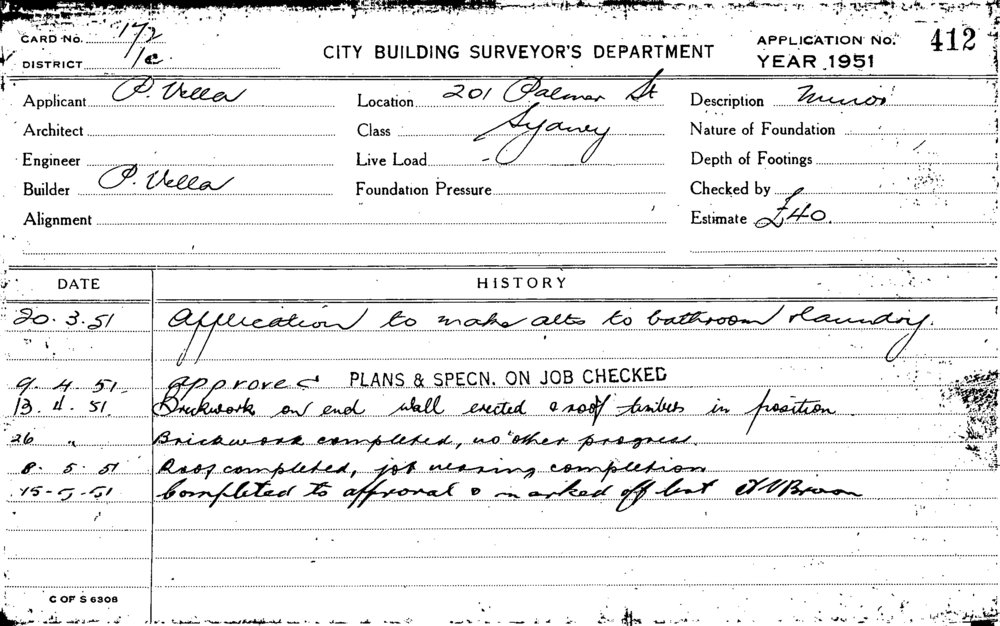 CARD NO. 172
DISTRICT 1c.
CITY BUILDING SURVEYOR'S DEPARTMENT
APPLICATION NO. 412
YEAR 1951
Applicant P. Vella
Location 201 Palmer St
Description Minor
Architect
Class Sydney
Nature of Foundation
Engineer
Live Load -
Depth of Footings
Builder P. Vella
Foundation Pressure
Checked by
Alignment
Estimate £40.
DATE HISTORY
20.3.51 Application to make alts to bathroom & laundry.
9. 4. 51. Approved PLANS & SPECN. ON JOB CHECKED
13. 4. 51. Brickwork on end wall erected & roof timbers in position.
26 " Brickwork completed, no other progress.
8. 5. 51 Roof completed, job nearing completion
15-5-51 Completed to approval & marked off list
C OF S 6308